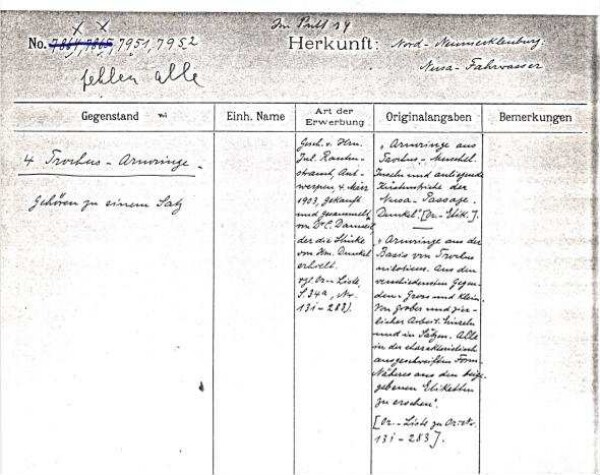 Im Pult 14
× ×
No. 7864, 7865, 7951, 7952
Herkunft: Nord-Neumecklenburg
Nusa-Fahrwasser
fehlen alle
Gegenstand
Einh. Name
Art der Erwerbung
Originalangaben
Bemerkungen
4 Trochus-Armringe.
Gehören zu einem Satz
Gesch. v. Hrn.
Jul. Rauten-
strauch, Ant-
werpen, 4. März
1903, gekauft
und gesammelt
von Dr. C. Damm
der die Stücke
von Hrn. Dunkel
erhielt.
vgl. Or-Liste,
S. 34a, Nr.
131-283).
"Armringe aus
Trochus-Muschel.
Inseln und anliegende
Küstenstriche der
Nusa-Passage.
Dunkel" [Or-Etik.].
"Armringe aus der
Basis von Trochus
niloticus. Aus den
verschiedensten Gegen-
den-Gross und Klein.
Von grober und zier-
licher Arbeit. Einzeln
und in Sätzen. Alle
in der charakteristisch
ausgeschweiften Form.
Näheres aus den beige-
gebenen Etiketten
zu ersehen".
[Or-Liste zu Or-Nr.
131-283].